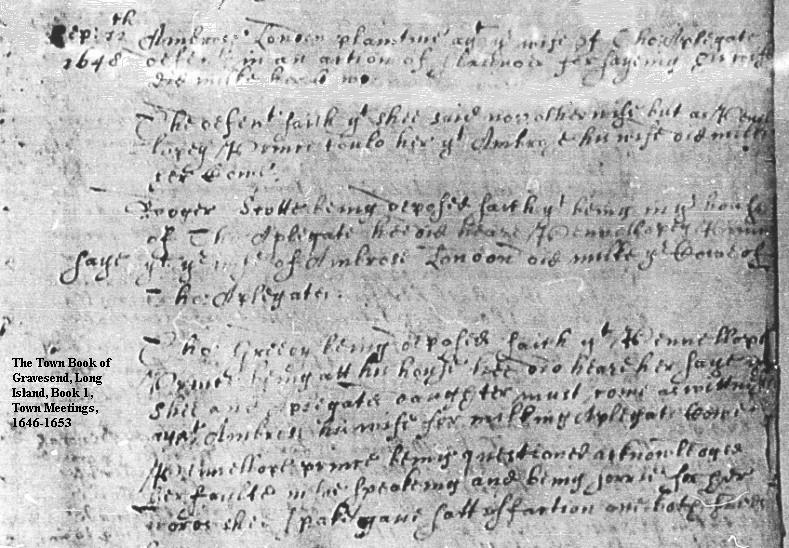 Sep: 12th Ambrose London plaintive agt ye wife of Tho: Aplegate
1648 defent in an action of slaunder for sayeing his wife
did milke her Cowe
The defent saith yt shee said noe otherwise but as Pene
lopey Prince tould her yt Ambrose his wife did milke
her Cowe.
Rooger Scotte being deposed saith yt being in ye house
of Tho: Aplegate hee did heare Pennellopey Prince
saye yt ye wife of Ambrose London did milke ye Cowe of
Tho: Aplegate.
Tho: Greedy being deposed saith yt Pennellope
Prince being att his house hee did heare her saye yt
shee and Aplegates daughter must come as wittnes
agat Ambrose his wife for milking Aplegate Cowe
Pennellope prince being questioned acknowledged
her faulte in soe speakeing and being sorrie for her
words shee spake gave sattisfaction one both sides
The Town Book of
Gravesend, Long
Island, Book 1,
Town Meetings,
1646-1653